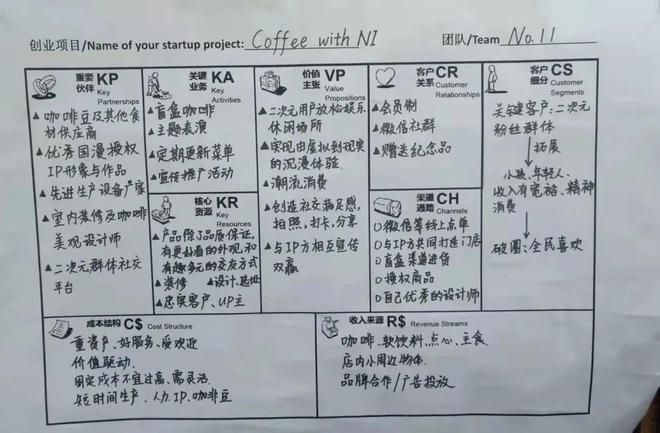 创业项目/Name of your startup project: Coffee with NI
团队/Team No.11
重要伙伴 KP Key Partnerships
▲咖啡豆及其他食
材供应商
▲优秀国漫授权
IP形象与作品
▲先进生产设备厂家
▲室内装修及咖啡
美观设计师
▲二次元群体社交
平台
关键业务 KA Key Activities
▲盲盒咖啡
▲主题表演
▲定期更新菜单
▲宣传推广活动
核心资源 KR Key Resources
▲产品除了品质保证,
有更好看的外观,和
有趣多元的交友方式
▲装修 ▲设计、选址
▲忠实客户、UP主
价值主张 VP Value Propositions
▲二次元用户放松娱乐
休闲场所
▲实现由虚拟到现实
的沉浸体验
▲潮流消费
▲创造社交满足感,
拍照,打卡,分享
▲与IP方相互宣传
双赢
客户关系 CR Customer Relationships
▲会员制
▲微信社群
▲赠送纪念品
渠道通路 CH Channels
○微信等线上点单
○与IP方共同打造门店
○盲盒渠道进货
○授权商品
○自己优秀的设计师
客户细分 CS Customer Segments
关键客户:二次元
粉丝群体
↓拓展
小孩、年轻人、
收入有宽裕、精神
消费
↓
破圈:全民喜欢
成本结构 C$ Cost Structure
重资产、好服务、受欢迎
价值驱动.
固定成本不宜过高、需灵活.
短时间生产、人力、IP、咖啡豆
收入来源 R$ Revenue Streams
咖啡、软饮料、点心、主食
店内小周边物体.
品牌合作/广告投放